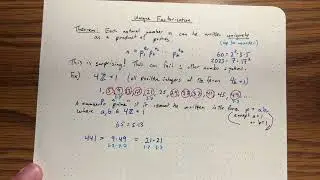 Unique Factorization
Theorem: Each natural number n can be written uniquely
(up to order)
as a product of primes
n = p₁^a₁ p₂^a₂ ... p_k^a_k
60 = 2²·3·5
2023 = 7·17²
This is surprising! This can fail in other number systems.
Ex) 4ℤ+1 (all positive integers of the form 4k+1)
1, 5, 9, 13, 17, 21, 25, 29, 33, 37, 41, 45, 49,
A number is prime if it cannot be written in the form p = ab
where a, b ∈ 4ℤ+1 (except a=1 or b=1)
65 = 5·13
441 = 9·49 = 21·21
3·3 7·7 3·7 3·7